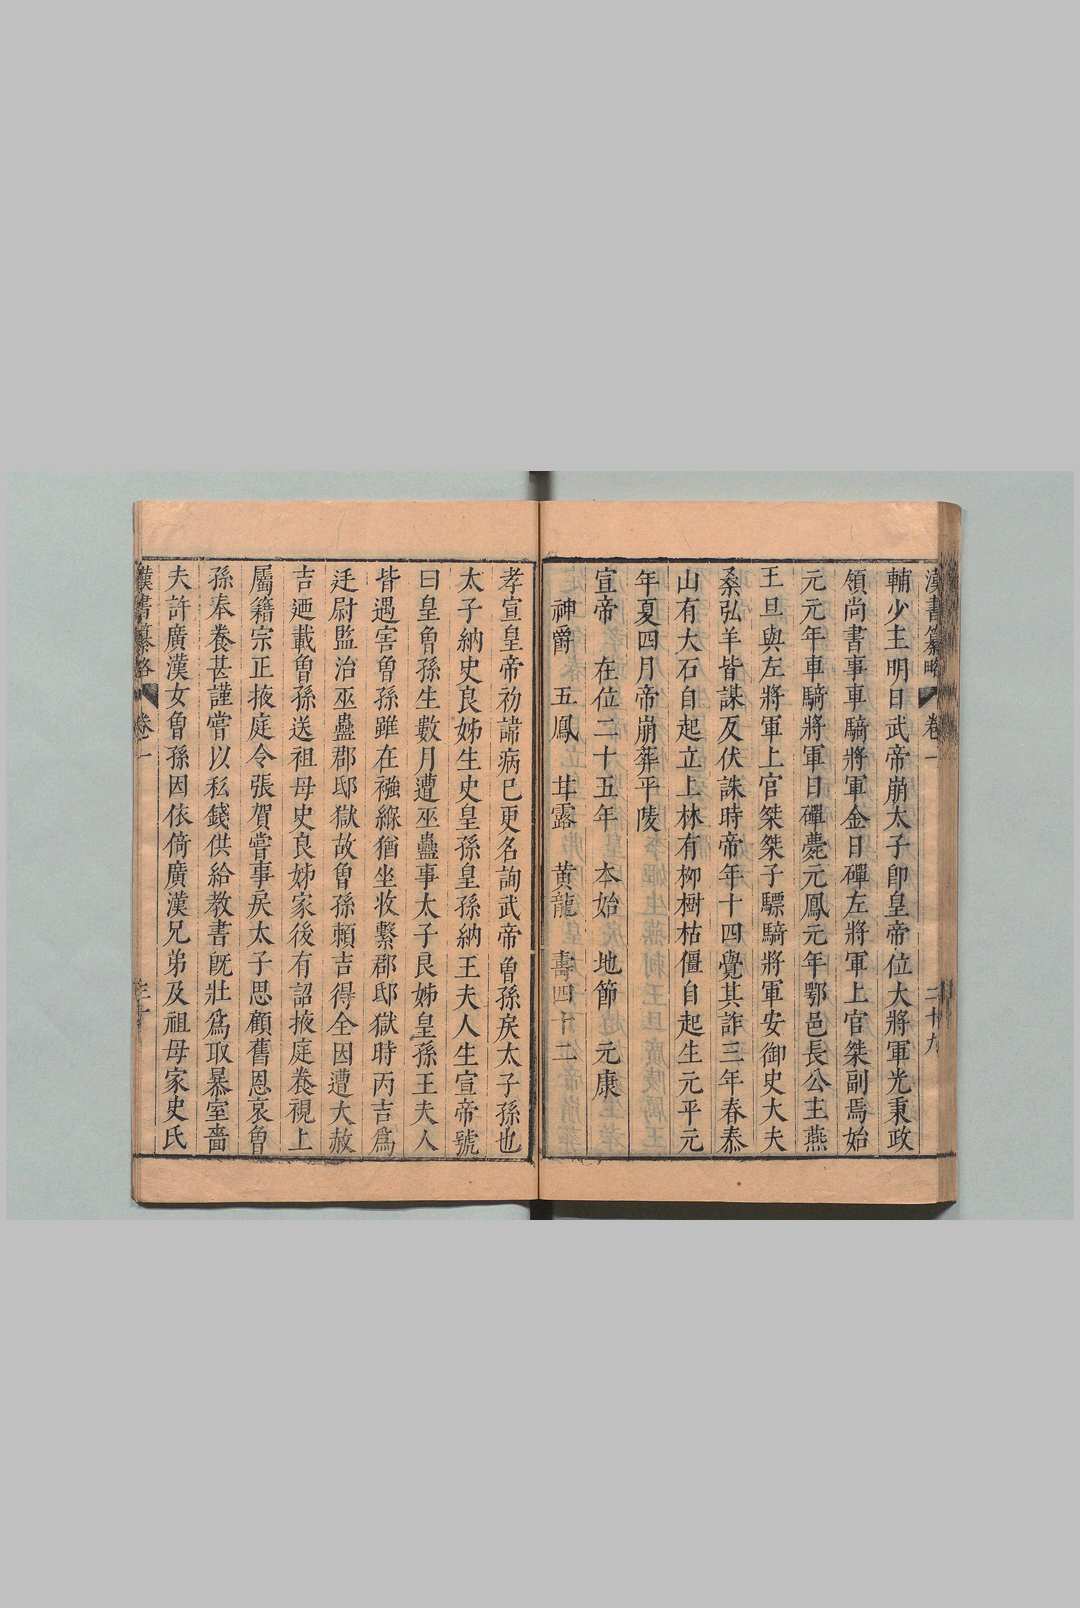 漢書纂略 卷一 二十九
輔少主明日武帝崩太子卽皇帝位大將軍光秉政
領尚書事車騎將軍金日磾左將軍上官桀副焉始
元元年車騎將軍日磾薨元鳳元年鄂邑長公主燕
王旦與左將軍上官桀桀子驃騎將軍安御史大夫
桑弘羊皆謀反伏誅時帝年十四覺其詐三年春泰
山有大石自起立上林有柳樹枯僵自起生元平元
年夏四月帝崩葬平陵
宣帝 在位二十五年 本始 地節 元康
神爵 五鳳 甘露 黃龍 壽四十二
孝宣皇帝初諱病已更名詢武帝曾孫戾太子孫也
太子納史良娣生史皇孫皇孫納王夫人生宣帝號
曰皇曾孫生數月遭巫蠱事太子良娣皇孫王夫人
皆遇害曾孫雖在襁緥猶坐收繫郡邸獄時丙吉爲
廷尉監治巫蠱郡邸獄故曾孫賴吉得全因遭大赦
吉廼載曾孫送祖母史良娣家後有詔掖庭養視上
屬籍宗正掖庭令張賀嘗事戾太子思顧舊恩哀曾
孫奉養甚謹嘗以私錢供給教書旣壯爲取暴室嗇
夫許廣漢女曾孫因依倚廣漢兄弟及祖母家史氏
漢書纂略 卷一